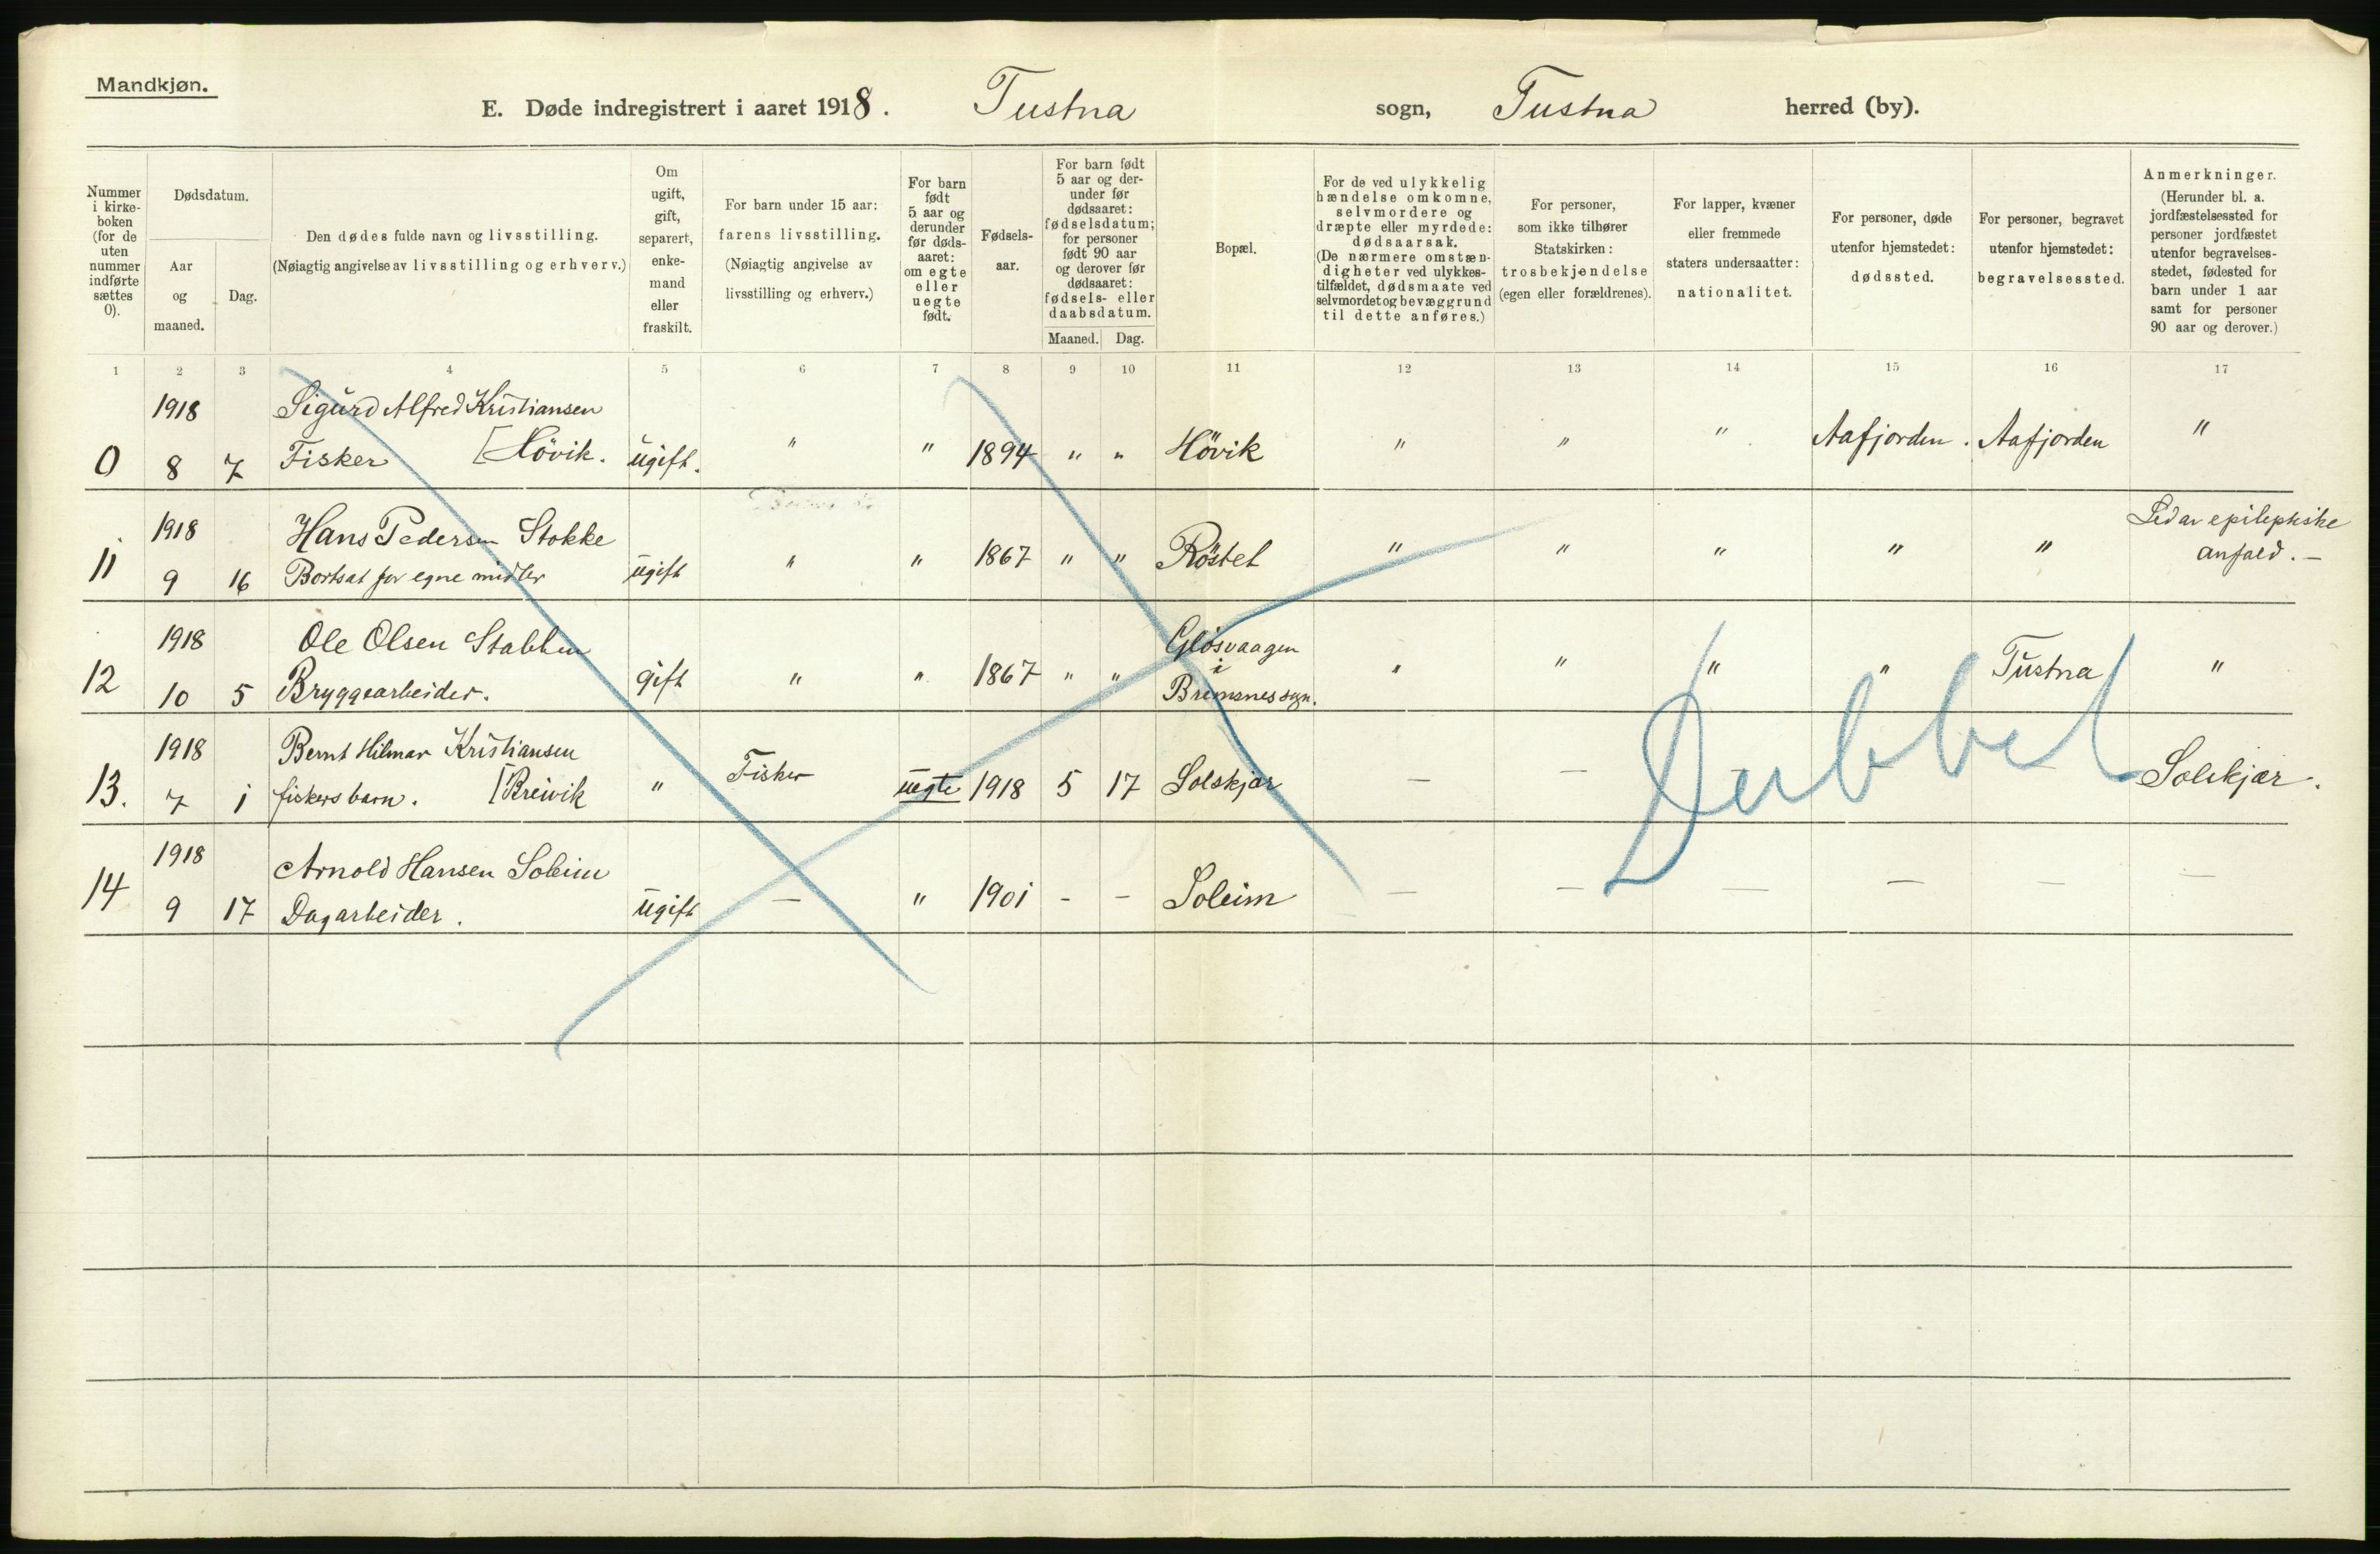 Mandkjøn.
E. Døde indregistrert i aaret 1918. Tustna sogn, Tustna herred (by).
Nummer i kirke-boken (for de uten nummer indførte sættes 0).
Dødsdatum.
Aar og maaned.
Dag.
Den dødes fulde navn og livsstilling.
(Nøiagtig angivelse av livsstilling og erhverv.)
Om ugift, gift, separert, enke-mand eller fraskilt.
For barn under 15 aar:
farens livsstilling.
(Nøiagtig angivelse av
livsstilling og erhverv.)
For barn født 5 aar og derunder før døds-aaret: om egte eller uegte født.
Fødsels-aar.
For barn født 5 aar og der-under før dødsaaret: fødselsdatum; for personer født 90 aar og derover før dødsaaret: fødsels- eller daabsdatum.
Maaned. Dag.
Bopæl.
For de ved ulykkelig
hændelse omkomne,
selvmordere og
dræpte eller myrdede:
dødsaarsak.
(De nærmere omstæn-
digheter ved ulykkes-
tilfældet, dødsmaate ved
selvmordet og bevæggrund
til dette anføres.)
For personer,
som ikke tilhører
Statskirken:
trosbekjendelse
(egen eller forældrenes).
For lapper, kvæner
eller fremmede
staters undersaatter:
nationalitet.
For personer, døde
utenfor hjemstedet:
dødssted.
For personer, begravet
utenfor hjemstedet:
begravelsessted.
Anmerkninger.
(Herunder bl. a.
jordfæstelsessted for
personer jordfæstet
utenfor begravelses-
stedet, fødested for
barn under 1 aar
samt for personer
90 aar og derover.)
1 2 3 4 5 6 7 8 9 10 11 12 13 14 15 16 17
1918 Sigurd Alfred Kristiansen
0 8 7 Fisker [Hövik. ugift. " " 1894 " " Hövik " " " Aafjorden. Aafjorden "
1918 Hans Pedersen Stokke Led av epileptiske
11 9 16 Bortsat for egne midler ugift " " 1867 " " Röstel " " " " " anfald. —
1918 Ole Olsen Stabben Glösvaagen
i
12 10 5 Bryggearbeider. gift " " 1867 " " Bremsnes sogn. " " " " Tustna "
1918 Bernt Hilmar Kristiansen
13. 7 1 fiskers barn. [Breivik " Fisker uegte 1918 5 17 Solskjær — — Solskjær.
Dubbel
1918 Arnold Hansen Soleim
14 9 17 Dagarbeider. ugift — " 1901 - - Soleim — — — — — —